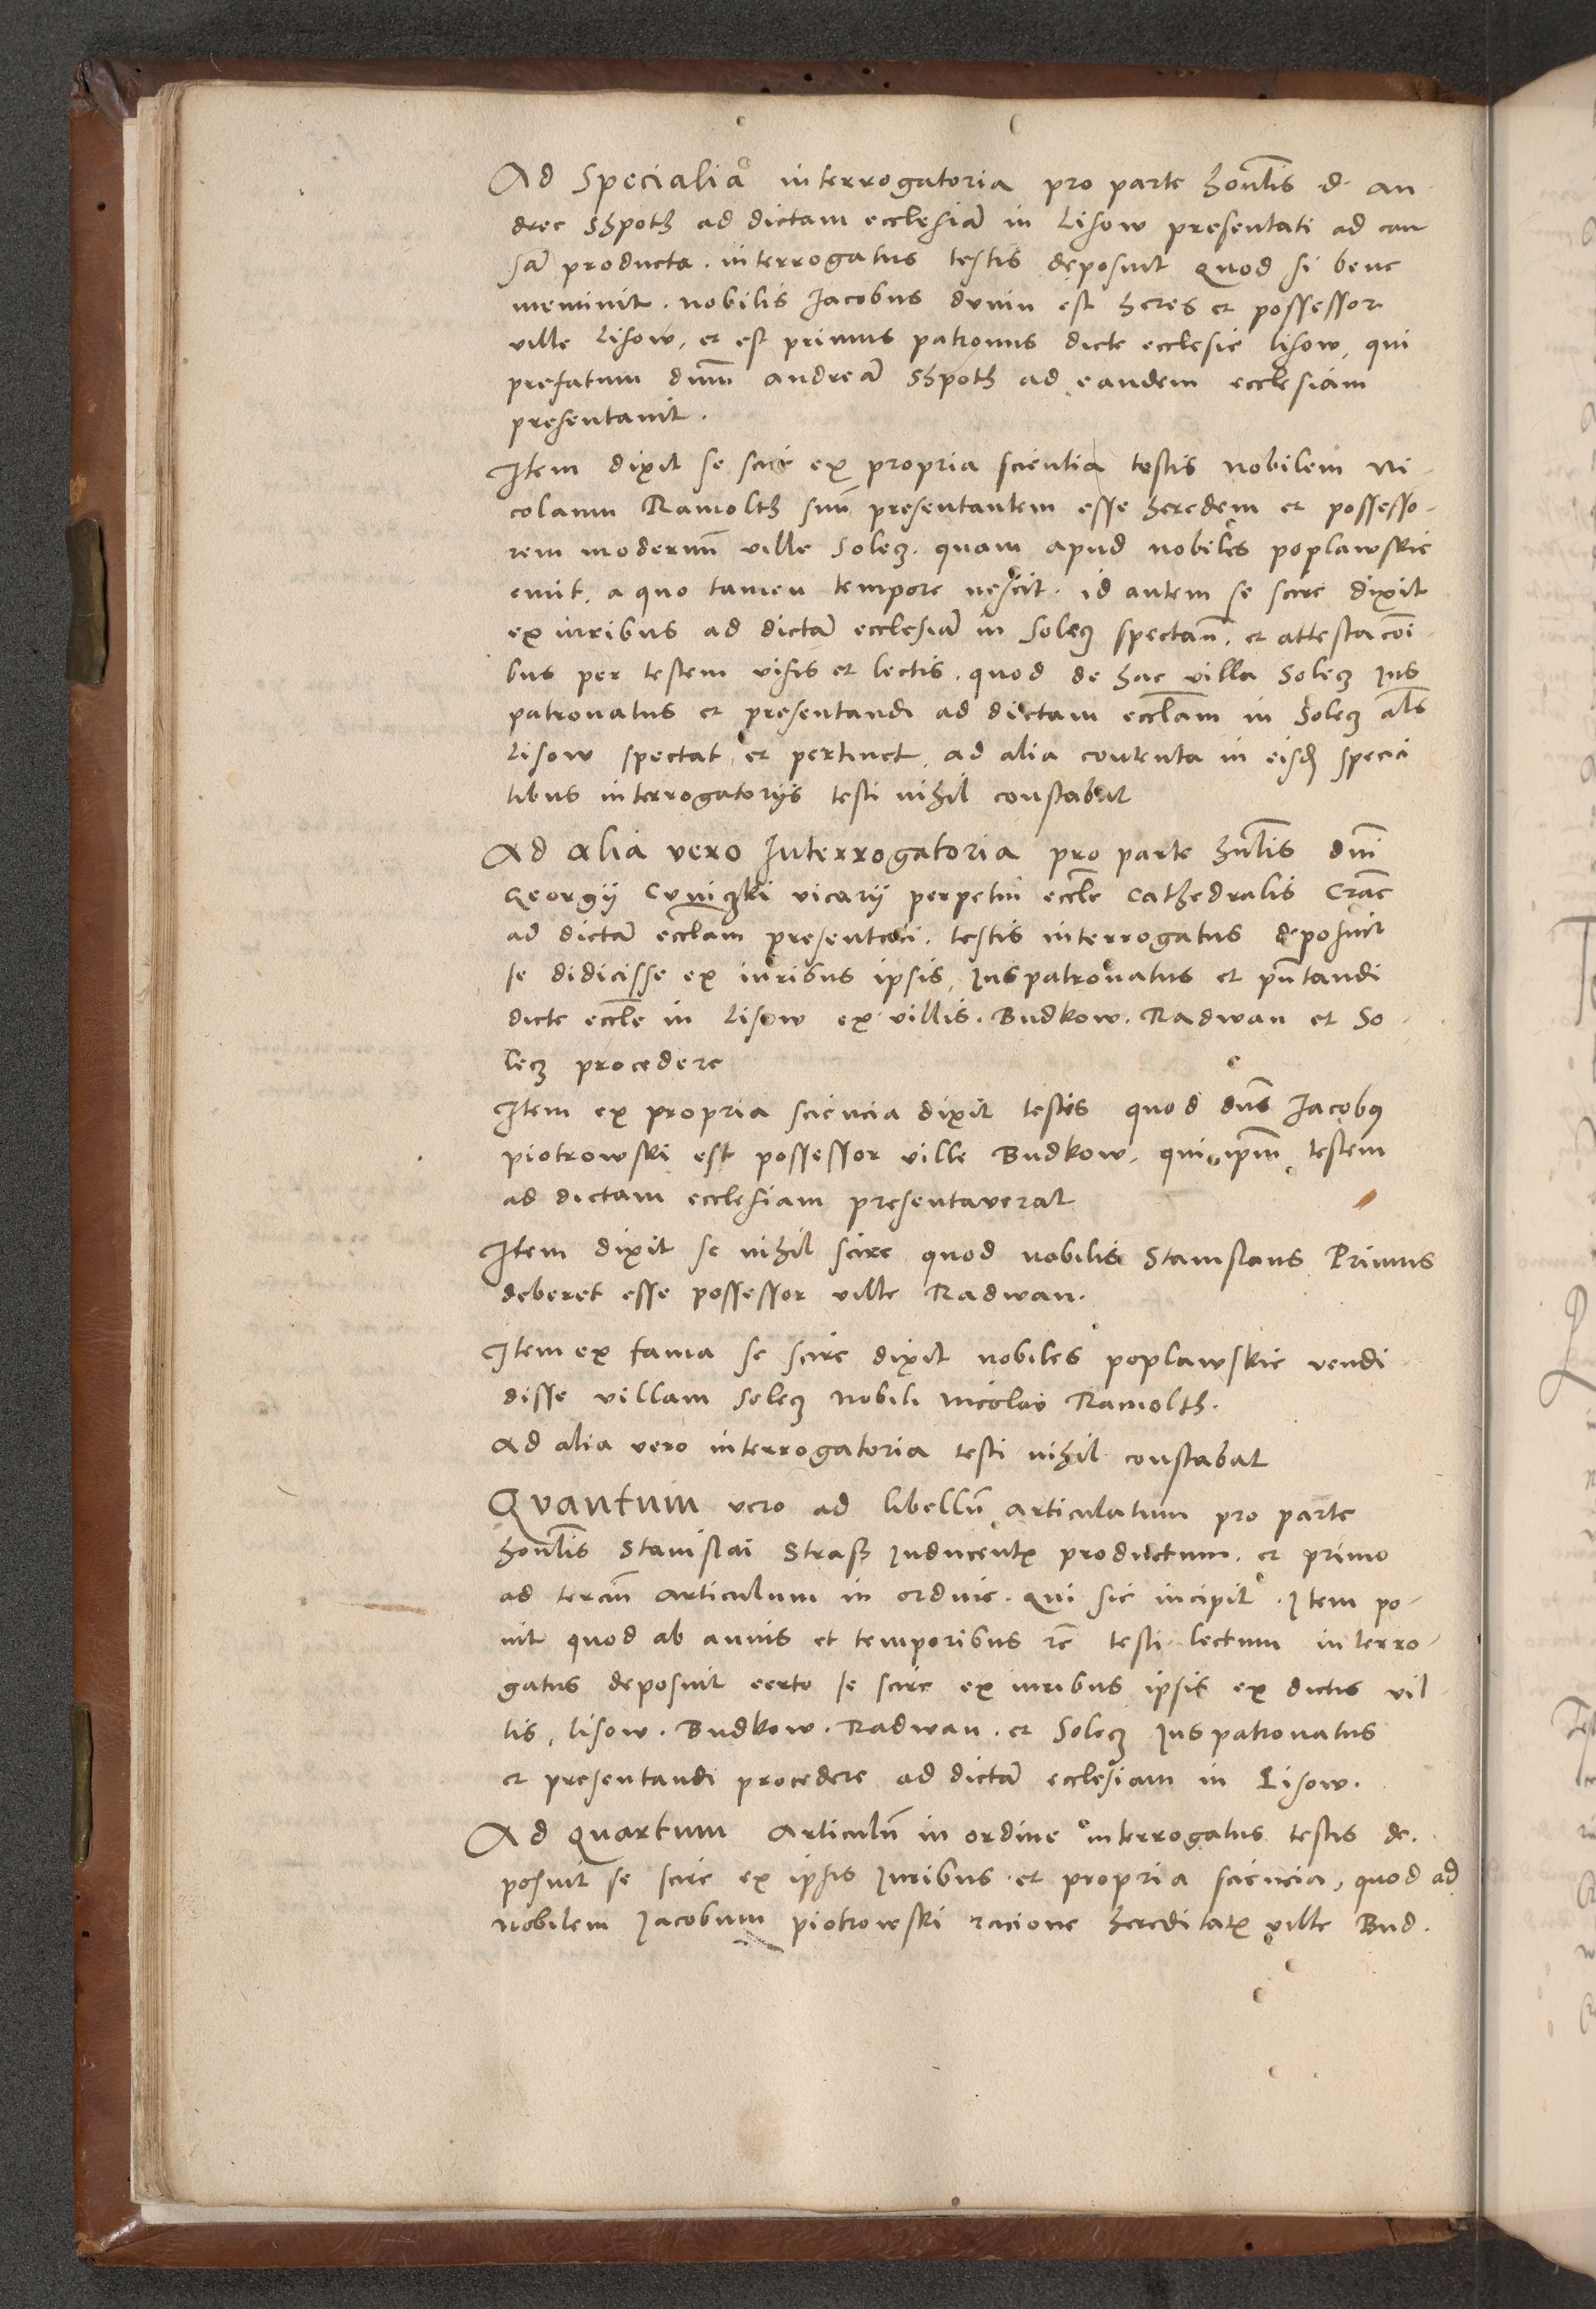 Ad Specialia interrogatoria pro parte hon̄lis d. an
dree Shpoth ad dictam ecclesiā in Lisow presentati ad cau
sā producta. interrogatus testis deposuit quod si bene
meminit. nobilis Jacobus dunin est heres et possessor
ville Lisow, et est primus patronus dicte ecclesie lisow, qui
prefatum dn̄m andreā Shpoth ad eandem ecclesiam
presentavit.
Item dixit se scire ex propria scientia testis nobilem Ni-
colaum Ramolth suū presentantem esse heredem et possesso-
rem modernū ville Solecz. quam apud nobiles poplawskie
emit. a quo tamen tempore nescit. id autem se scire dixit
ex iuribus ad dictā ecclesiā in Solecz spectan̄. et attestacōi
bus per testem visis et lectis. quod de hac villa Solecz Jus
patronatus et presentandi ad dictam eccl̄am in Solecz al̄s
Lisow spectat et pertinet. ad alia contenta in eisd̄ speci
libus interrogatorijs testi nihil constabat
Ad alia vero Interrogatoria pro parte hn̄lis dn̄i
Georgij Cuniczki vicarij perpetui eccl̄e Cathedralis Crac̄
ad dictā eccl̄am presentati. testis interrogatus deposuit
se didicisse ex iuribus ipsis, Juspatronatus et pn̄tandi
dicte eccl̄e in Lisow ex villis. Budkow. Radwan et So-
lecz procedere
Item ex propria sciencia dixit testis quod dn̄s Jacobus
piotrowski est possessor ville Budkow, qui ip̄m testem
ad dictam ecclesiam presentaverat
Item dixit se nihil scire quod nobilis Stanislaus Primus
deberet esse possessor ville Radwan.
Item ex fama se scire dixit nobiles poplawskie vendi
disse villam Solecz nobili nicolao Ramolth.
ad alia vero interrogatoria testi nihil constabat
Quantum vero ad libellū articulatum pro parte
hon̄lis Stanislai Straß Inducentis productum. et primo
ad terciū articulum in ordine. qui sic incipit. Item po-
nit quod ab annis et temporibus rc̄ testi lectum interro-
gatus deposuit certo se scire ex iuribus ipsis ex dictis vil-
lis, lisow. Budkow. Radwan. et Solecz Juspatronatus
et presentandi procedere ad dictā ecclesiam in Lisow.
Ad quartum Articulū in ordine interrogatus testis de-
posuit se scire ex ipsis Juribus et propria sciencia, quod ad
nobilem Jacobum piotrowski racione hereditatis ville Bud-